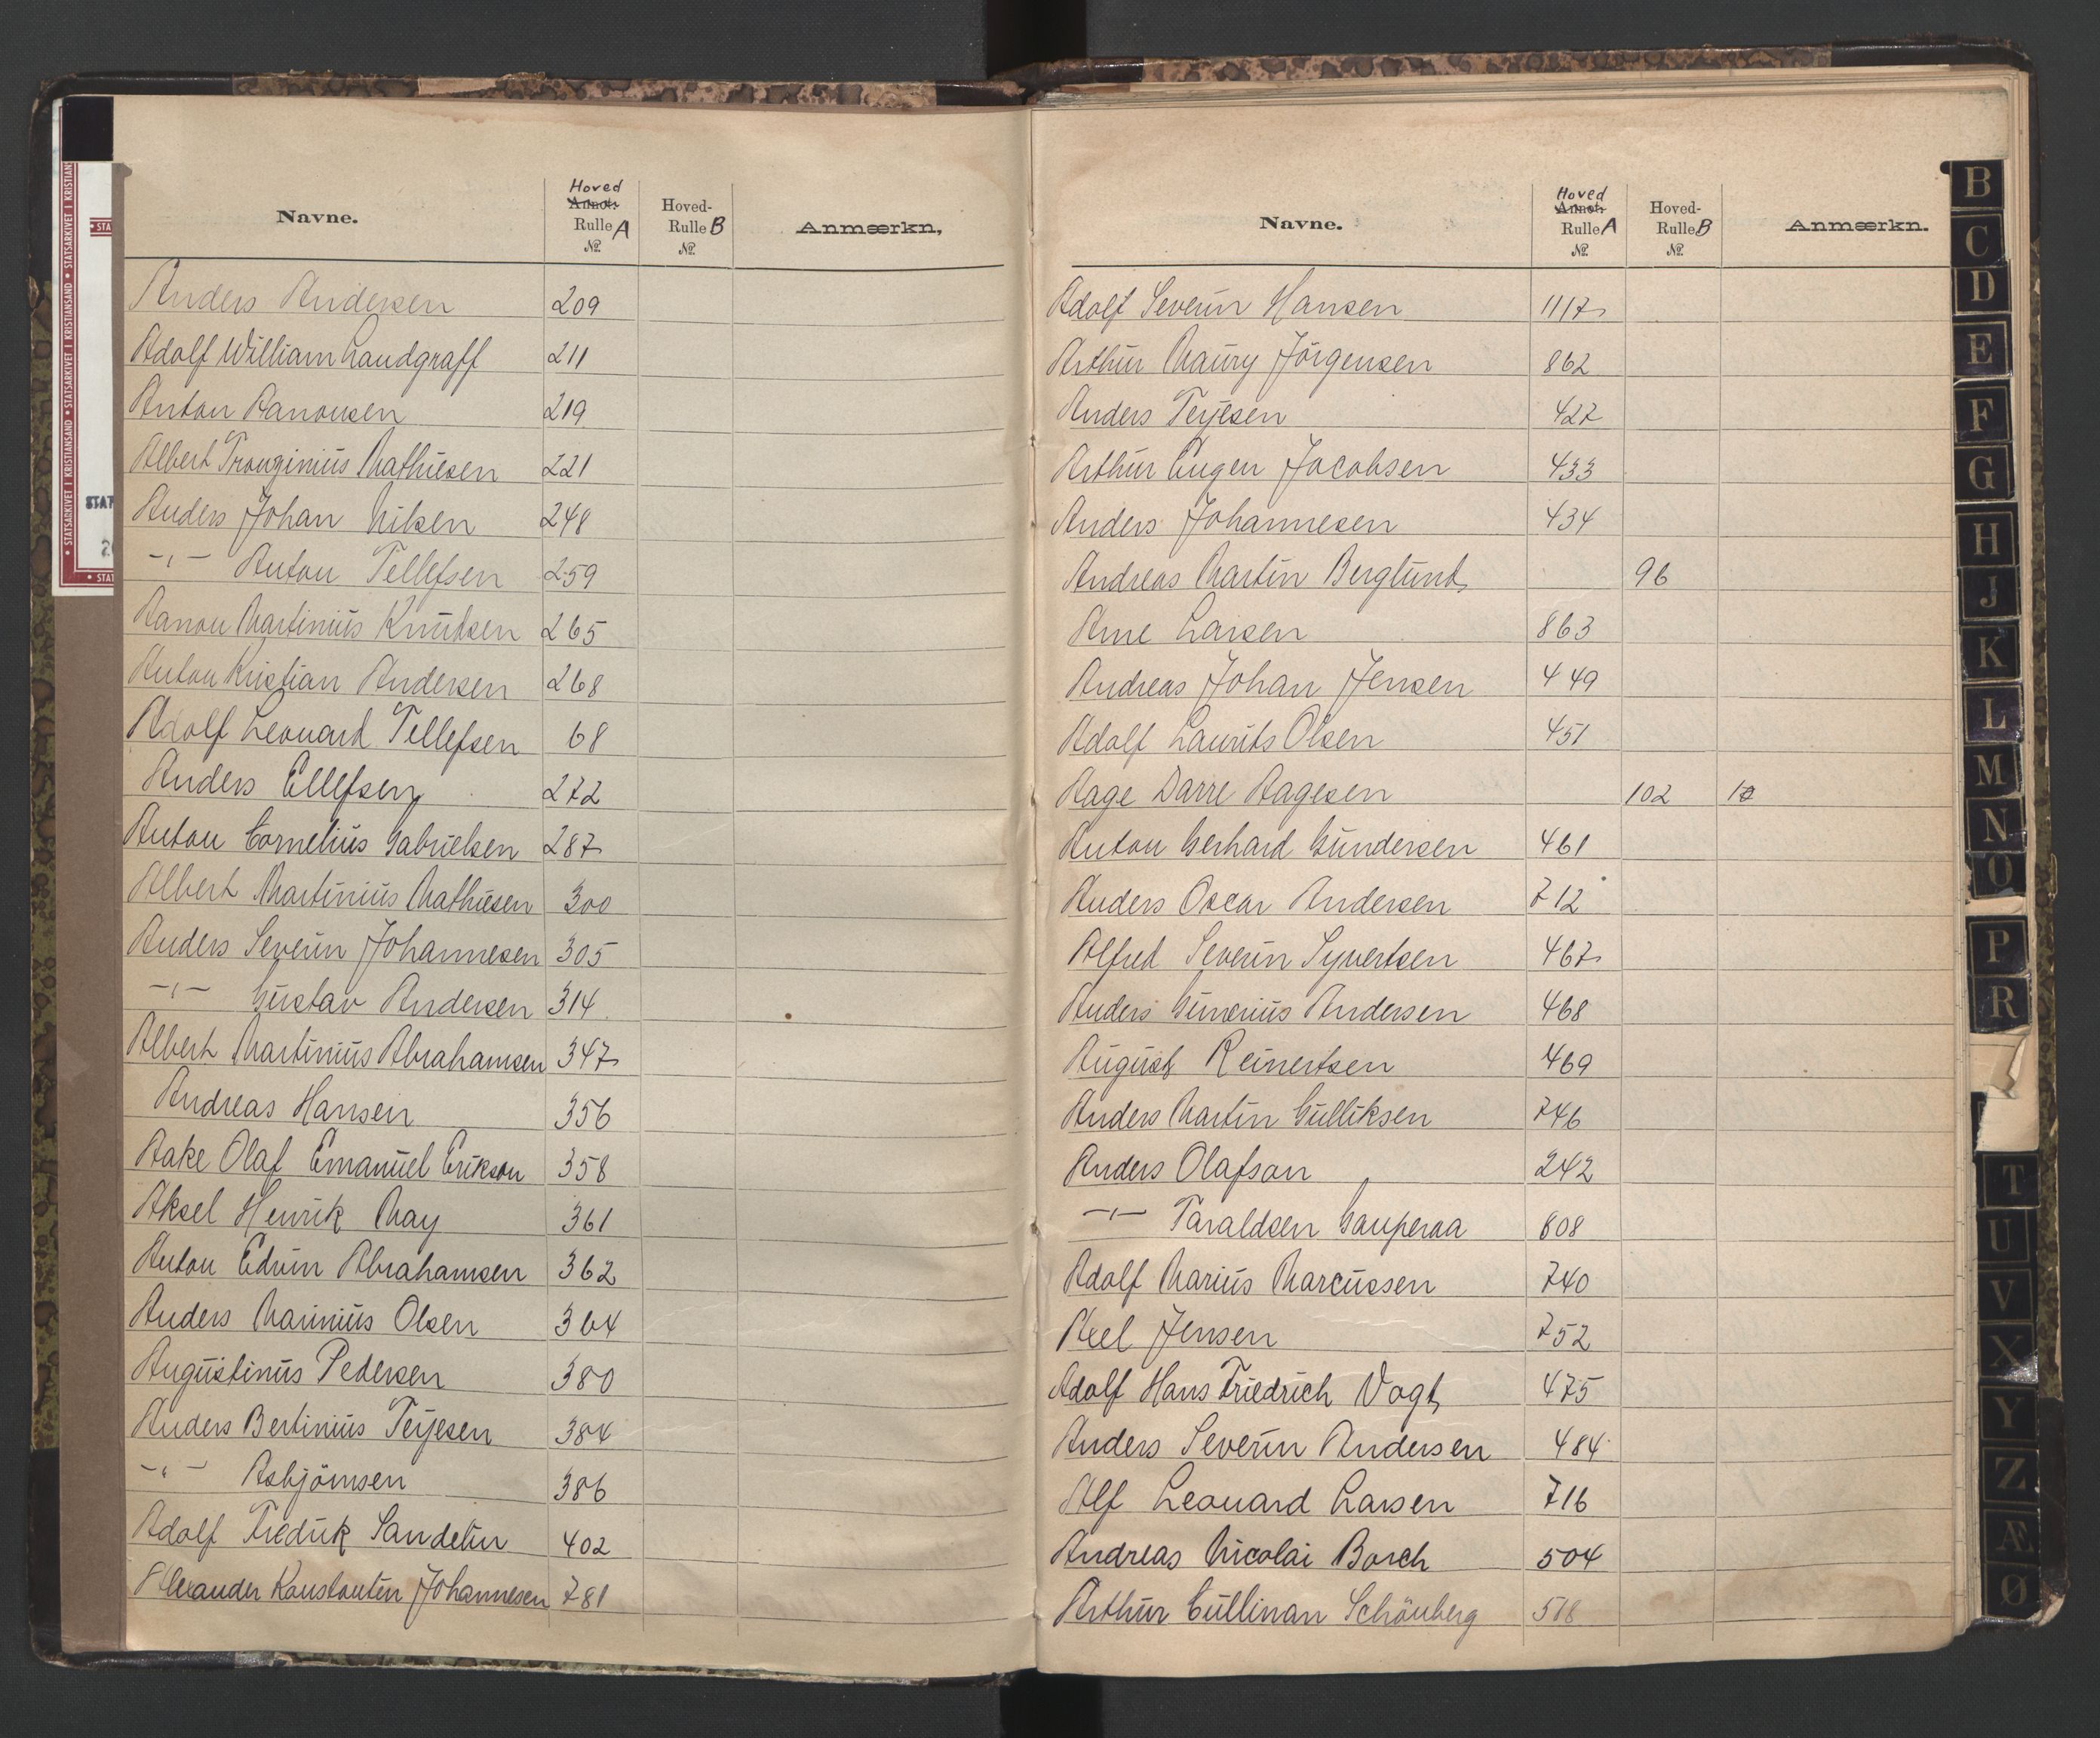 Navne. Hoved Annot: Rulle A No. Hoved-Rulle B No. Anmærkn,
Anders Andersen 209
Adolf William Landgraff 211
Anton Aanonsen 219
Albert Tronginius Mathiesen 221
Anders Johan Nilsen 248
-"- Anton Tellefsen 259
Aanon Martinius Knudsen 265
Anton Kristian Andersen 268
Adolf Leonard Tellefsen 68
Anders Ellefsen 272
Anton Cornelius Gabrielsen 287
Albert Martinius Mathiesen 300
Anders Severin Johannesen 305
-"- Gustav Andersen 314
Albert Martinius Abrahamsen 347
Andreas Hansen 356
Aake Olaf Emanuel Erikson 358
Aksel Henrik May 361
Anton Edvin Abrahamsen 362
Anders Marinius Olsen 364
Augustinus Pedersen 380
Anders Bertinius Terjesen 384
-"- Asbjörnsen 386
Adolf Fredrik Sandelin 402
Alexander Konstantin Johannesen 781
Navne. Hoved Annot: Rulle A No. Hoved-Rulle B No. Anmærkn.
Adolf Severin Hansen 1117
Arthur Maury Jörgensen 862
Anders Terjesen 427
Arthur Eugen Jacobsen 433
Anders Johannesen 434
Andreas Martin Berglund 96
Arne Larsen 863
Andreas Johan Jensen 449
Adolf Laurits Olsen 451
Aage Darre Aagesen 102
Anton Gerhard Gundersen 461
Anders Oscar Andersen 712
Alfred Severin Syvertsen 467
Anders Gunerius Andersen 468
August Reinertsen 469
Anders Martin Gulliksen 746
Anders Olafson 242
-"- Taraldsen Gauperaa 808
Adolf Marius Marcussen 740
Axel Jensen 752
Adolf Hans Friedrich Vogt 475
Anders Severin Andersen 484
Alf Leonard Larsen 716
Andreas Nicolai Borch 504
Arthur Cullinan Schönberg 518
B
C
D
E
F
G
H
J
K
L
M
N
O
P
R
T
U
V
X
Y
Z
Æ
Ø
• STATSARKIVET I KRISTIANSAND • STATSARKIVET I KRISTIANSAND • STATSARKIVET I KRISTIANS